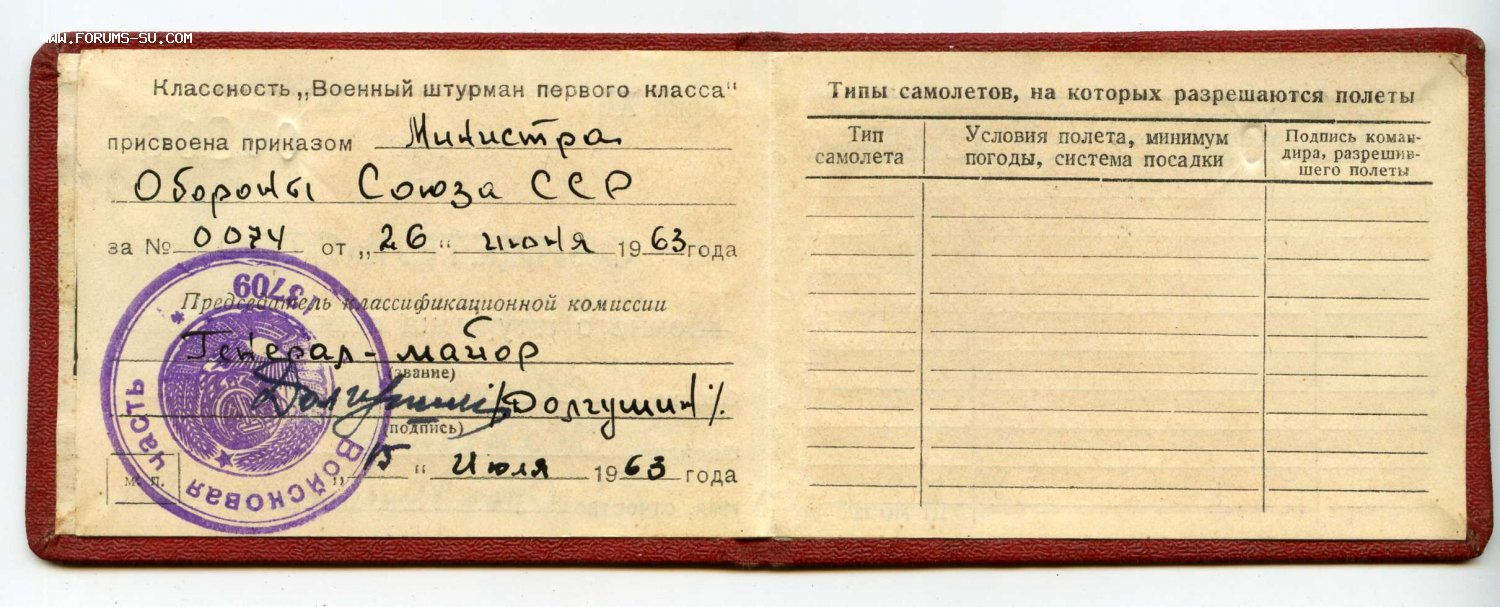 WWW.FORUMS-SU.COM
Классность „Военный штурман первого класса“
присвоена приказом Министра
Обороны Союза ССР
за № 0074 от „26“ июня 1963 года
Председатель классификационной комиссии
Генерал-майор
(звание)
Долгушин /Долгушин/.
(подпись)
„15“ июля 1963 года
м. п.
Войсковая часть
13709
Типы самолетов, на которых разрешаются полеты
Тип самолета
Условия полета, минимум погоды, система посадки
Подпись коман-
дира, разрешив-
шего полеты